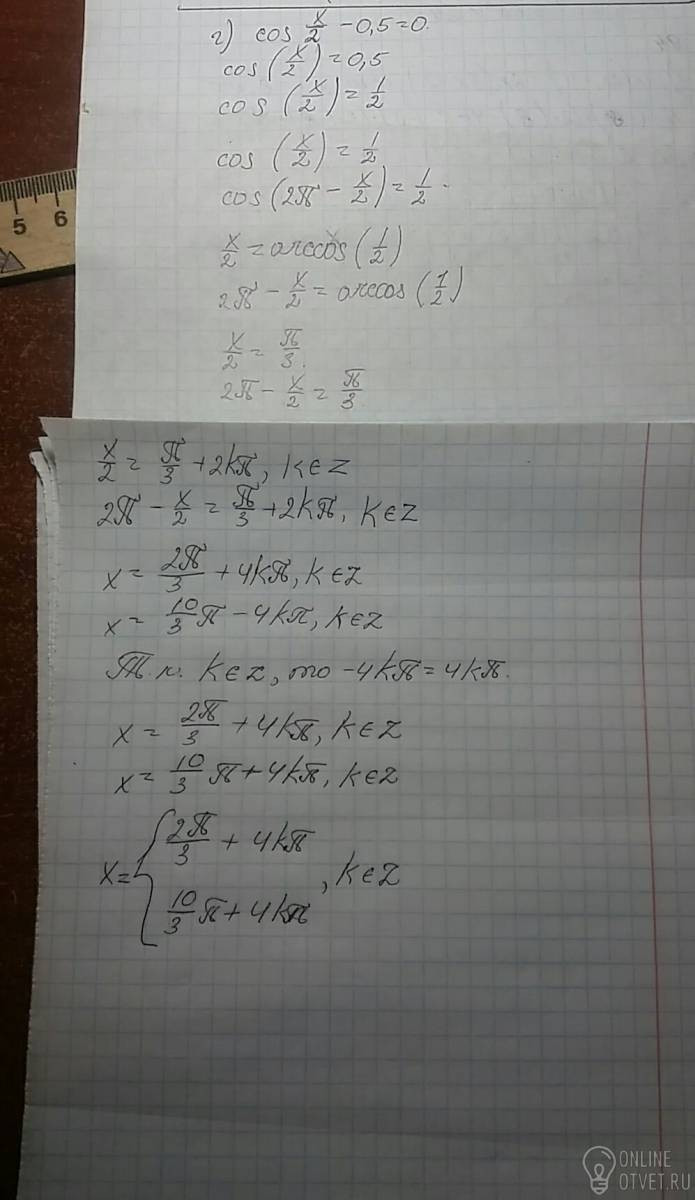 г) cos x/2 − 0,5 = 0.
cos (x/2) = 0,5
cos (x/2) = 1/2
cos (x/2) = 1/2
cos (2π − x/2) = 1/2
x/2 = arccos (1/2)
2π − x/2 = arccos (1/2)
x/2 = π/3.
2π − x/2 = π/3
x/2 = π/3 + 2kπ, k∈Z
2π − x/2 = π/3 + 2kπ, k∈Z
x = 2π/3 + 4kπ, k∈Z
x = 10/3 π − 4kπ, k∈Z
Т.к. k∈Z, то −4kπ = 4kπ.
x = 2π/3 + 4kπ, k∈Z
x = 10/3 π + 4kπ, k∈Z
x = { 2π/3 + 4kπ
10/3 π + 4kπ , k∈Z
5 6
ONLINE
OTVET.RU